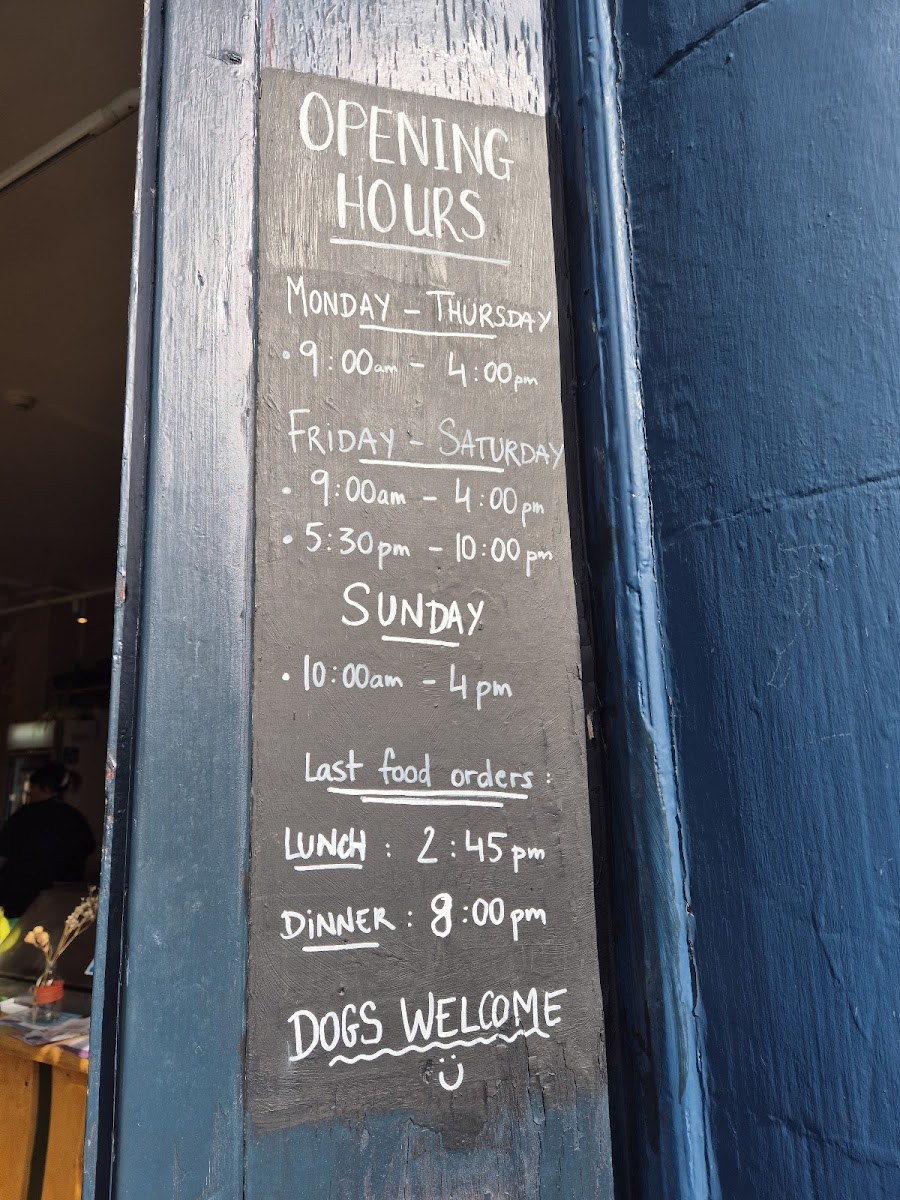 OPENING
HOURS
MONDAY - THURSDAY
• 9:00am - 4:00pm
FRIDAY - SATURDAY
• 9:00am - 4:00pm
• 5:30pm - 10:00pm
SUNDAY
• 10:00am - 4pm
Last food orders:
LUNCH: 2:45pm
DINNER: 8:00pm
DOGS WELCOME